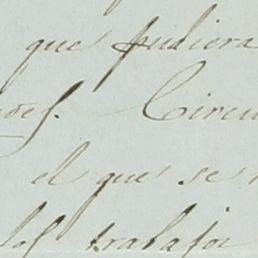 que pudiera
Circu
el que se
los trabajos